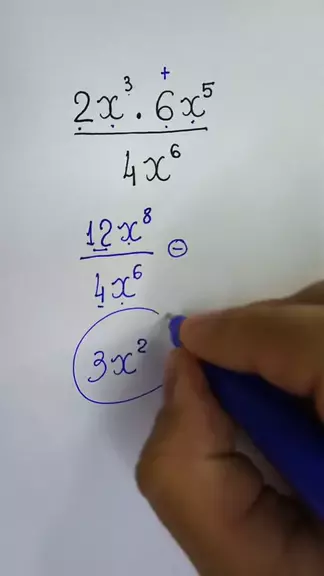 +
2x³ . 6x⁵
4x⁶
12x⁸
4x⁶
⊖
3x²